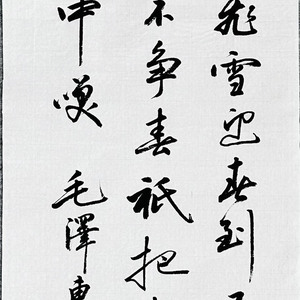 飛雪迎春到
不争春祇把
中唉 毛澤東